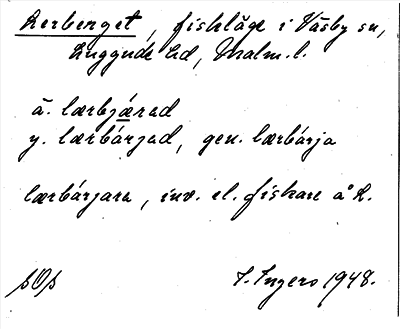 Lerberget, fiskläge i Väsby sn,
Luggude hd, Malm. l.
ä. lærbjæræd
y. lærbárjad, gen. lærbárja
lærbárjara, inv. el. fiskare å L.
SOS
I. Ingers 1948.